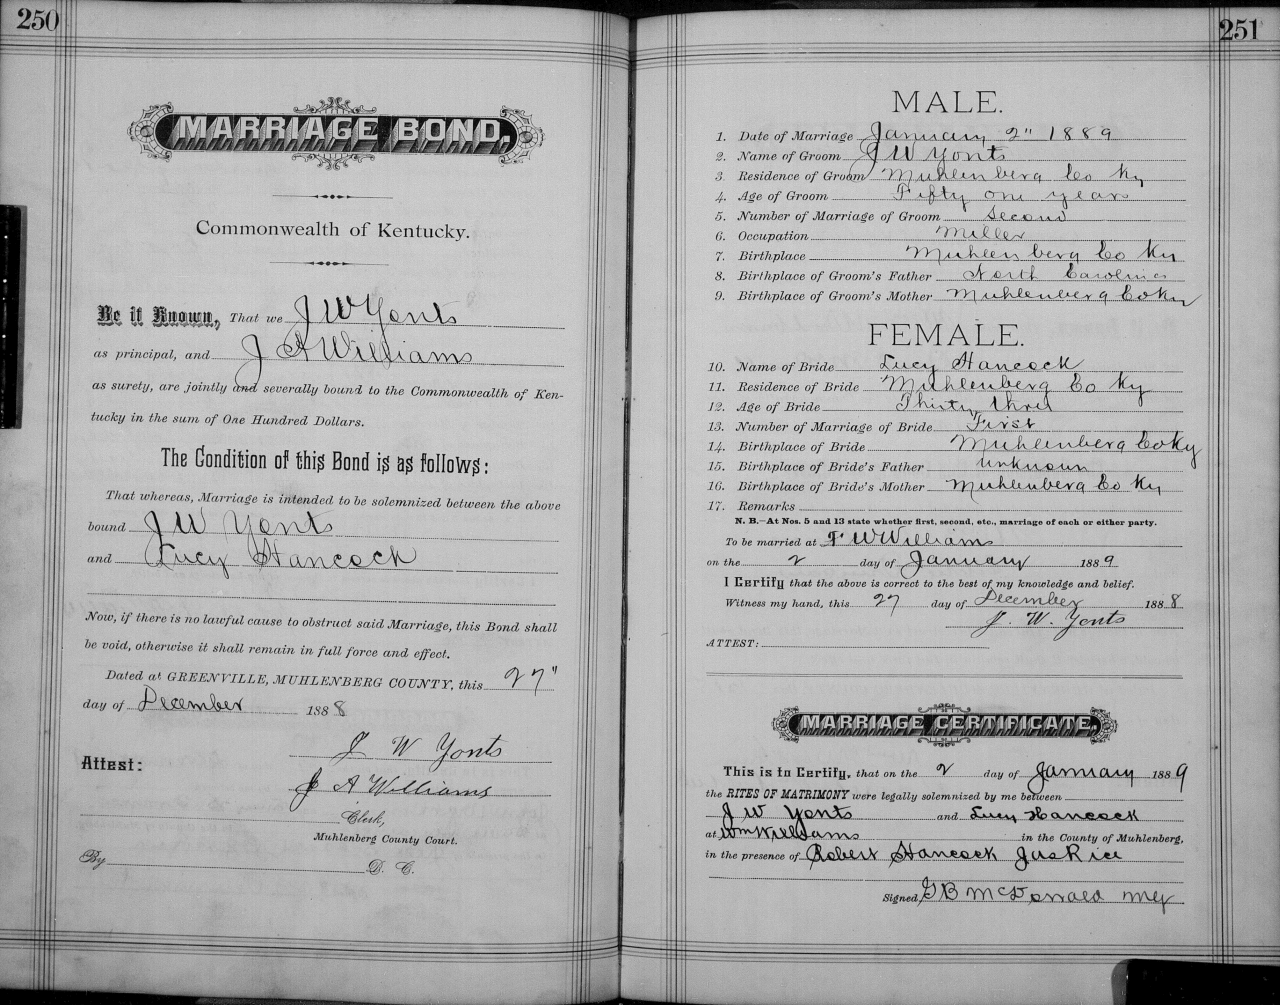 250
MARRIAGE BOND.
Commonwealth of Kentucky.
Be it Known, That we J W Yonts
as principal, and J A Williams
as surety, are jointly and severally bound to the Commonwealth of Ken-
tucky in the sum of One Hundred Dollars.
The Condition of this Bond is as follows:
That whereas, Marriage is intended to be solemnized between the above
bound J W Yonts
and Lucy Hancock
Now, if there is no lawful cause to obstruct said Marriage, this Bond shall
be void, otherwise it shall remain in full force and effect.
Dated at GREENVILLE, MUHLENBERG COUNTY, this 27"
day of December 1888
J W Yonts
Attest:
J A Williams
Clerk,
Muhlenberg County Court.
By D. C.
251
MALE.
1. Date of Marriage January 2" 1889
2. Name of Groom J W Yonts
3. Residence of Groom Muhlenberg Co Ky
4. Age of Groom Fifty one years
5. Number of Marriage of Groom Second
6. Occupation Miller
7. Birthplace Muhlenberg Co Ky
8. Birthplace of Groom's Father North Carolina
9. Birthplace of Groom's Mother Muhlenberg Co Ky
FEMALE.
10. Name of Bride Lucy Hancock
11. Residence of Bride Muhlenberg Co Ky
12. Age of Bride Thirty three
13. Number of Marriage of Bride First
14. Birthplace of Bride Muhlenberg Co Ky
15. Birthplace of Bride's Father unknown
16. Birthplace of Bride's Mother Muhlenberg Co Ky
17. Remarks
N. B.—At Nos. 5 and 13 state whether first, second, etc., marriage of each or either party.
To be married at F W Williams
on the 2 day of January 1889
I Certify that the above is correct to the best of my knowledge and belief.
Witness my hand, this 27 day of December 1888
J. W. Yonts
ATTEST:
MARRIAGE CERTIFICATE.
This is to Certify, that on the 2 day of January 1889
the RITES OF MATRIMONY were legally solemnized by me between
J W Yonts and Lucy Hancock
at Wm Williams in the County of Muhlenberg,
in the presence of Robert Hancock Jas Rice
Signed, G B McDonald